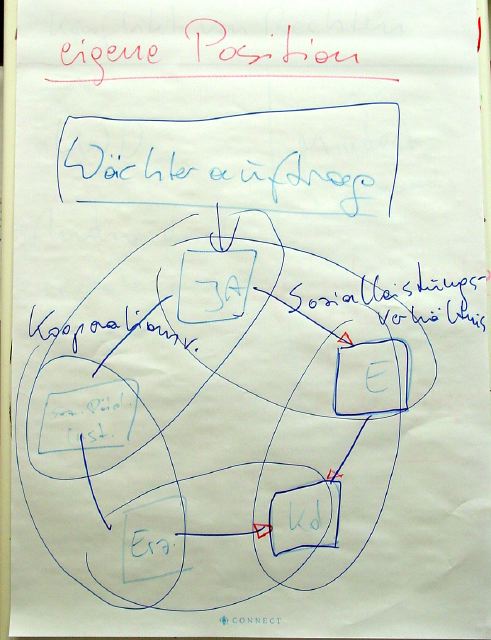 eigene Position
Wächterauftrag
JA
Sozialleistungs-
verhältnis
Kooperationsv.
E
soz. Päd.
Inst.
Erz.
Kd
CONNECT